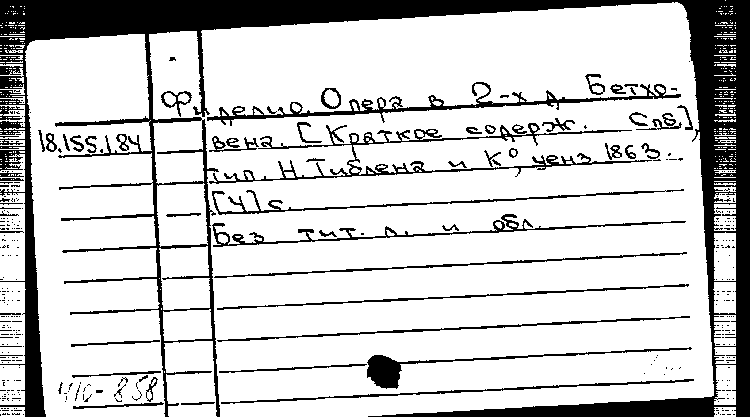 Фиделио. Опера в 2-х д. Бетхо-
18.155.1.84 вена. [Краткое содерж. Спб.],
тип. Н. Тиблена и К°, ценз. 1863.
[4] с.
Без тит. л. и обл.
410-858